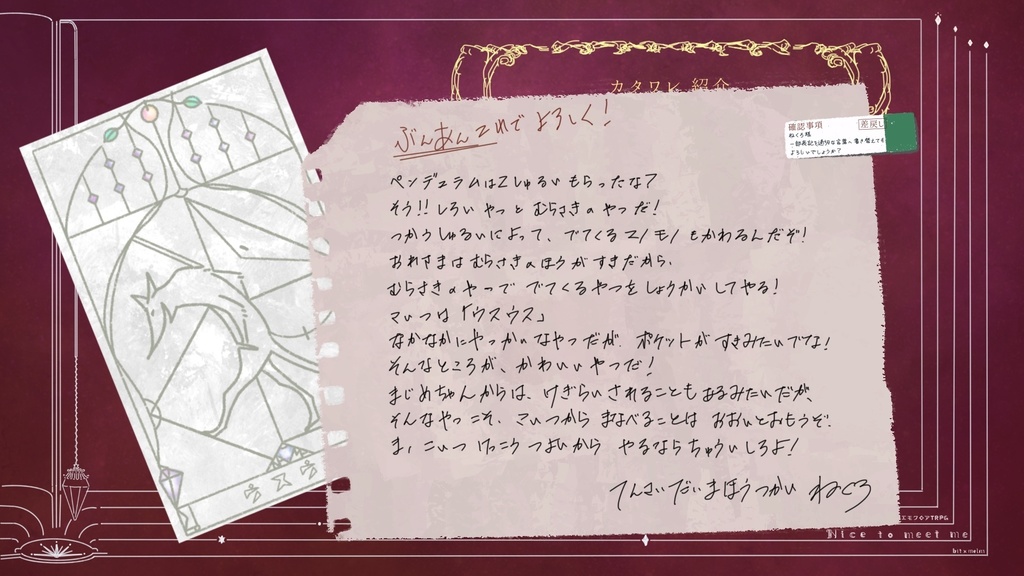 カタワレ紹介
ぶんあんこれで よろしく!
確認事項
差戻し
ねくろ様
一部表記を適切な言葉へ書き替えても
よろしいでしょうか?
ペンデュラムは2しゅるい もらったな?
そう!! しろい やつと むらさきの やつだ!
つかうしゅるいによって、でてくるエノモノもかわるんだぞ!
おれさまは むらさきの ほうが すきだから、
むらさきのやつで でてくるやつを しょうかい してやる!
こいつは「ウスウス」
なかなかに やっかいなやつだが、ポケットが すきみたいでな!
そんなところが、かわいいやつだ!
まじめちゃんからは、けぎらいされることも あるみたいだが、
そんなやつこそ、こいつから まなべることは おおいとおもうぞ.
ま、こいつ けっこう つよいから やるならちゅういしろよ!
てんさいだいまほうつかい ねくろ
Nice to meet me